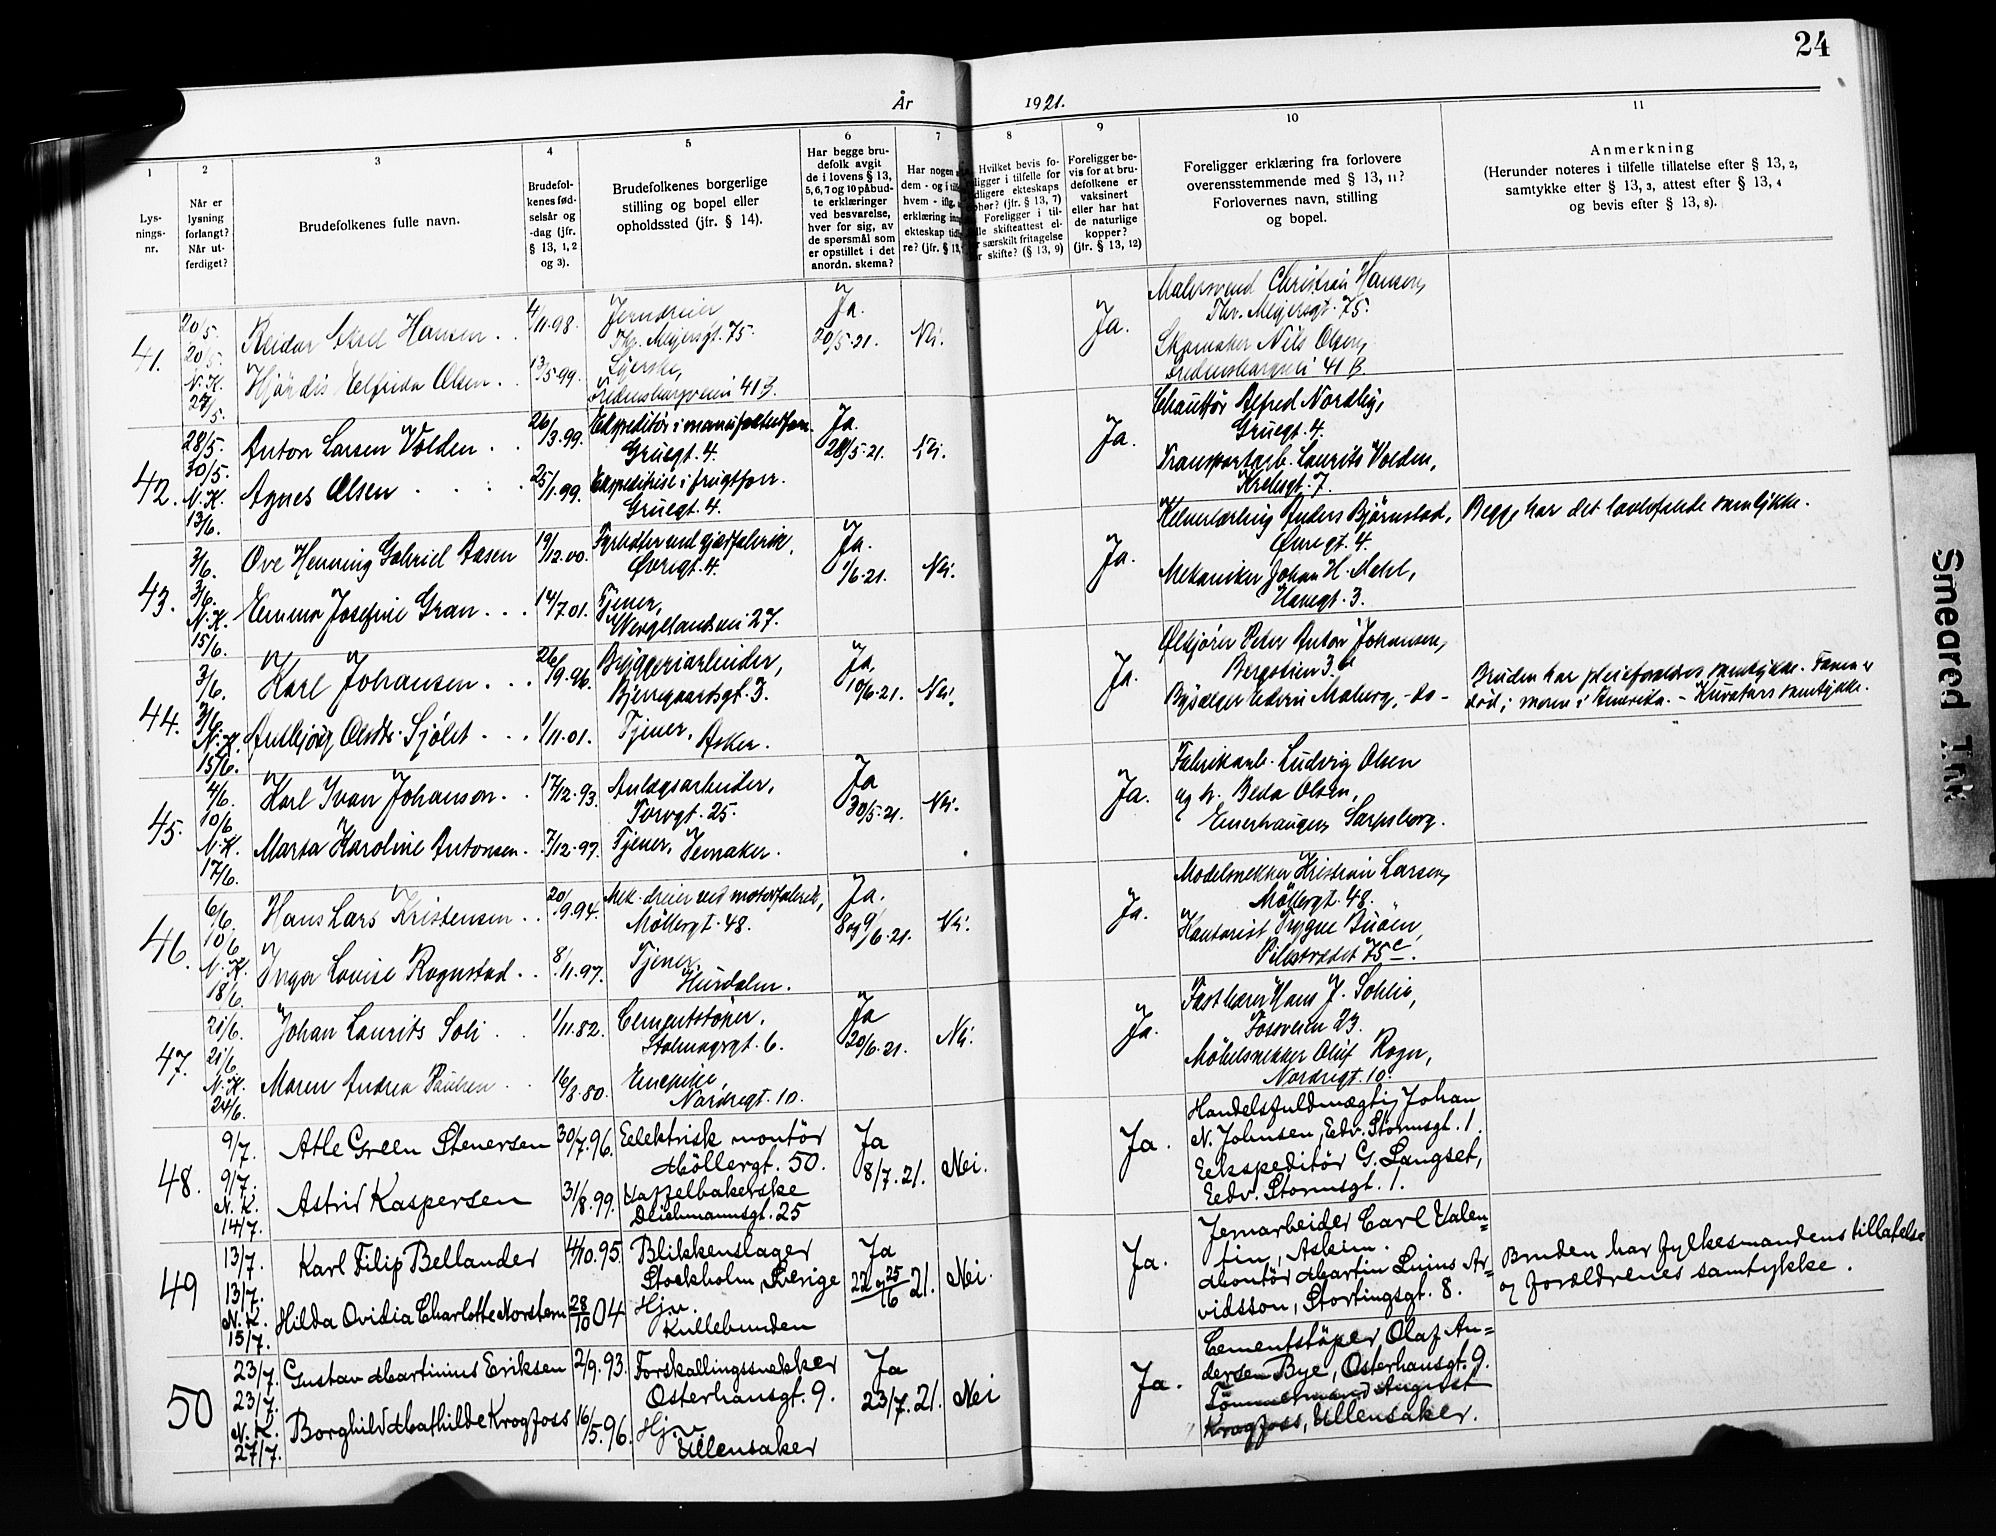 24
År 1921.
1
Lys-
nings-
nr.
2
Når er
lysning
forlangt?
Når ut-
ferdiget?
3
Brudefolkenes fulle navn.
4
Brudefol-
kenes fød-
selsår og
-dag (jfr.
§ 13, 1, 2
og 3).
5
Brudefolkenes borgerlige
stilling og bopel eller
opholdssted (jfr. § 14).
6
Har begge bru-
defolk avgit
de i lovens § 13,
5, 6, 7 og 10 påbud-
te erklæringer
ved besvarelse,
hver for sig, av
de spørsmål som
er opstillet i det
anordn. skema?
7
Har nogen
dem - og i
hvem - iflg.
erklæring
ekteskap tid
re? (jfr. § 13,
8
Hvilket bevis fo-
ligger i tilfelle for
dligere ekteskaps
phør? (jfr. § 13, 7)
Foreligger i til-
lle skifteattest el-
r særskilt fritagelse
or skifte? (§ 13, 9)
9
Foreligger be-
vis for at bru-
defolkene er
vaksinert
eller har hat
de naturlige
kopper?
(jfr. § 13, 12)
10
Foreligger erklæring fra forlovere
overensstemmende med § 13, 11?
Forlovernes navn, stilling
og bopel.
11
Anmerkning
(Herunder noteres i tilfelle tillatelse efter § 13, 2,
samtykke efter § 13, 3, attest efter § 13, 4
og bevis efter § 13, 8).
41.
20/5.
20/5.
N.K.
27/5.
Reidar Hansen
4/11.98.
Jerndreier
Thv. Meyersgt. 75.
Hjördis Elfrida Olsen
13/5.99.
Syerske,
Fredensborgveien 41 B.
Ja.
20/5.21.
Nei.
Ja.
Malersvend Christian Hansen,
Thv. Meyersgt. 75.
Skomaker Nils Olsen,
Fredensborgvei 41 B.
42.
28/5.
30/5.
N.K.
13/6.
Anton Larsen Volden
26/3.99.
Ekspeditör i manufakturforr.
Gruegt. 4.
Agnes Olsen
25/1.99.
Ekspeditrise i frugtforr.
Gruegt. 4.
Ja.
28/5.21.
Nei.
Ja.
Chauffør Alfred Nordby,
Gruegt. 4.
Transportarb. Laurits Volden,
Krebsgt. 7.
43.
3/6.
3/6.
N.K.
15/6.
Ove Henning Gabriel Aasen
19/12.00.
Fyrbøter ved gjærfabrik,
Øvregt. 4.
Emma Josefine Gran
14/7.01.
Tjener,
Wergelandsvei 27.
Ja.
1/6.21.
Nei.
Ja.
Kelnerlærling Anders Björnstad,
Øvregt. 4.
Mekaniker Johan H.
3.
Begge har det lovbefalede samtykke.
44.
3/6.
3/6.
N.K.
15/6.
Karl Johansen
26/9.96.
Bryggeriarbeider,
Bjerregaardsgt. 3.
Olsdtr. Sjölset
1/11.01.
Tjener, Asker.
Ja,
10/6.21.
Nei.
Ja.
Ølkjører Peter Anton Johansen,
Bergstien 3
Moberg, - do -
Bruden har pleieforældres samtykke. Faren er
død; moren i Amerika. - Kurators samtykke.
45.
4/6.
10/6.
N.K.
17/6.
Karl Ivan Johanson
17/12.93.
Anlægsarbeider,
Torvgt. 25.
Marta Karoline Antonsen
7/12.97.
Tjener, Vernaker.
Ja
30/5.21.
Nei.
Ja.
Fabrikarb. Ludvig Olsen
og h. Beda Olsen,
Sarpsborg.
46.
6/6.
10/6.
N.K.
18/6.
Hans Lars Kristensen
20/9.94.
Mek. dreier ved motorfabrik,
Möllergt. 48.
Inga Lovise Rognstad
8/11.97.
Tjener,
Hurdalen.
Ja.
8 og 9/6.21.
Nei.
Ja.
Modelsnekker Kristian Larsen,
Möllergt. 48.
Kontorist Trygve Buöen,
Pilestrædet 75 c.
47.
21/6.
21/6.
N.K.
24/6.
Johan Laurits Soli
1/11.82.
Cementstöper,
6.
Maren Andrea Paulsen
16/3.80.
Enepike,
Nordregt. 10.
Ja
20/6.21.
Nei.
Ja.
Hans J. Sohlie,
Fossveien 23.
Möbelsnekker Oluf Rogn,
Nordregt. 10.
48.
9/7.
9/7.
N.K.
14/7.
Atle Green Stenersen
30/7.96.
Eelektrisk montör
Möllergt. 50.
Astrid Kaspersen
31/8.99.
Vaffelbakerske
Deichmannsgt. 25
Ja
8/7.21.
Nei.
Ja.
Handelsfuldmægtig Johan
N. Johnsen, Edv. Stormsgt. 1.
Eekspeditör G. Langset,
Eedv. Stormsgt. 1.
49
13/7.
13/7.
N.K.
15/7.
Karl Filip Bellander
4/10.95.
Blikkenslager
Stockholm, Sverige
Hilda Ovidia Charlotte Norstern
28/10 04
Hj.v.
Kullebunden
Ja
22 og 25/6 21.
Nei.
Ja.
Jernarbeider Carl Valen=
tin, Askim.
Montör Martin Linus Ar=
vidsson, Stortingsgt. 8.
Bruden har fylkesmandens tillatelse
og forældrenes samtykke.
50
23/7.
23/7.
N.K.
27/7.
Gustav Martinius Eriksen
2/9.93.
Forskallingssnekker
Osterhausgt. 9.
Borghild Mathilde Krogfoss
16/5.96.
Hj.v.
Ullensaker
Ja
23/7.21.
Nei
Ja.
Cementstöper Olaf An=
dersen Bye, Osterhausgt. 9.
Tömmermand August
Krogfoss, Ullensaker.
Smeared Ink